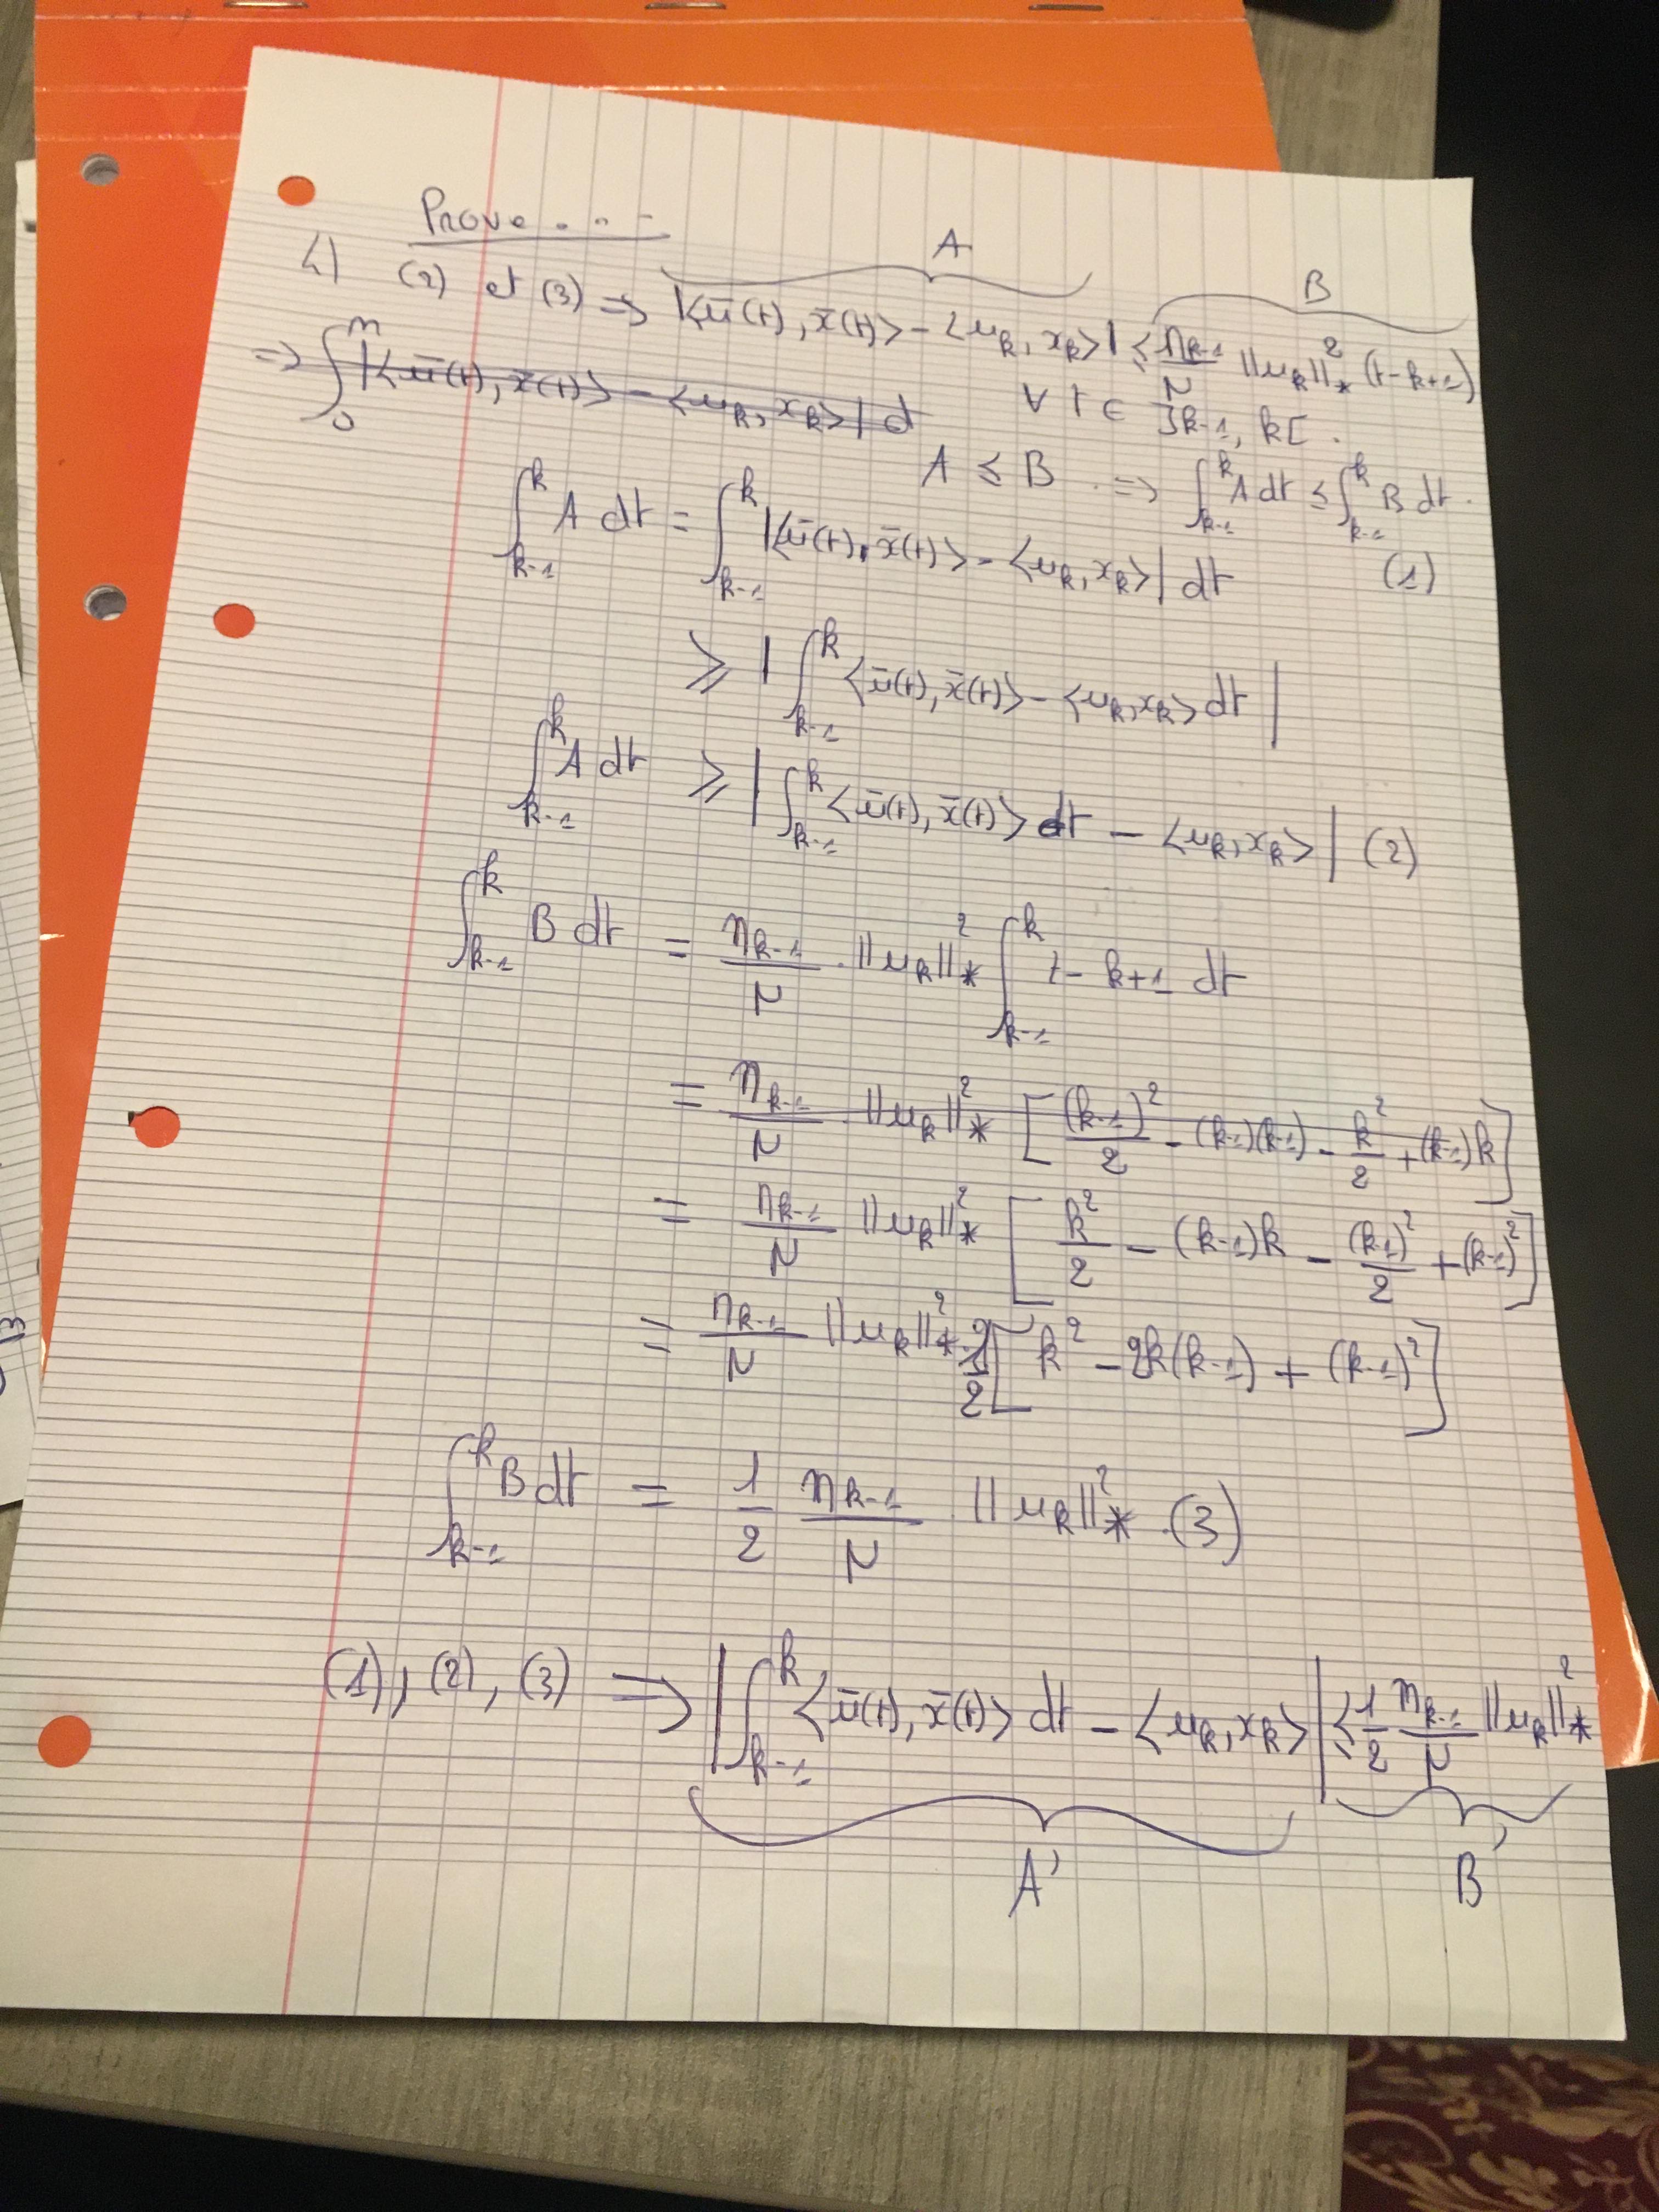 Prove . . . -
4) (2) et (3) ⇒ |<ū(t), x̄(t)> - <u_k, x_k>| ≤ η_{k-1}/N ||u_k||²_* (t-k+1)
A
B
⇒ ∫_0^n |<ū(t), x̄(t)> - <u_k, x_k>| d
∀ t ∈ ]k-1, k[ .
A ≤ B . ⇒ ∫_{k-1}^k A dt ≤ ∫_{k-1}^k B dt .
∫_{k-1}^k A dt = ∫_{k-1}^k |<ū(t), x̄(t)> - <u_k, x_k>| dt (1)
≥ | ∫_{k-1}^k <ū(t), x̄(t)> - <u_k, x_k> dt |
∫_{k-1}^k A dt ≥ | ∫_{k-1}^k <ū(t), x̄(t)> dt - <u_k, x_k> | (2)
∫_{k-1}^k B dt = η_{k-1}/N . ||u_k||²_* ∫_{k-1}^k t - k+1 dt
= η_{k-1}/N . ||u_k||²_* [ (k-1)²/2 - (k-1)(k-1) - k²/2 + (k-1)k ]
= η_{k-1}/N ||u_k||²_* [ k²/2 - (k-1)k - (k-1)²/2 + (k-1)² ]
= η_{k-1}/N ||u_k||²_* . 1/2 [ k² - 2k(k-1) + (k-1)² ]
∫_{k-1}^k B dt = 1/2 η_{k-1}/N ||u_k||²_* . (3)
(1), (2), (3) ⇒ | ∫_{k-1}^k <ū(t), x̄(t)> dt - <u_k, x_k> | ≤ 1/2 η_{k-1}/N ||u_k||²_*
A'
B'